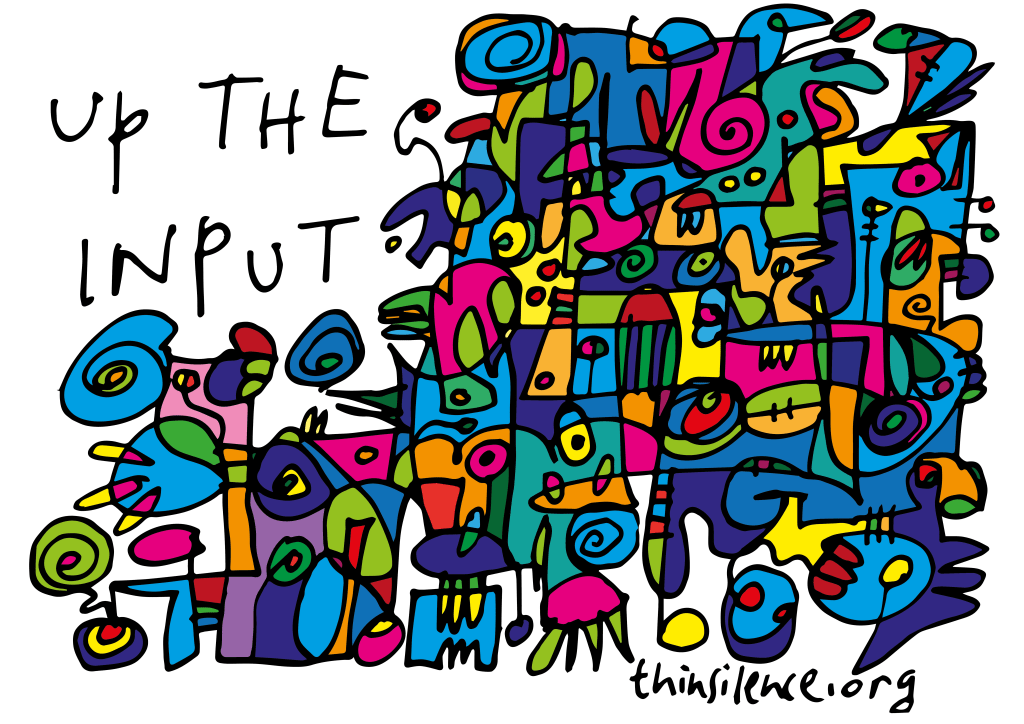 Up THE
INPUT
thinsilence.org